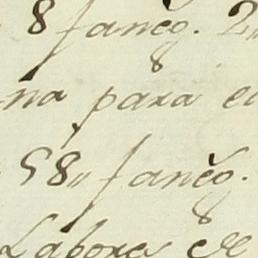 8 faneg. 2,,
na para el
58,, faneg.
Labores de